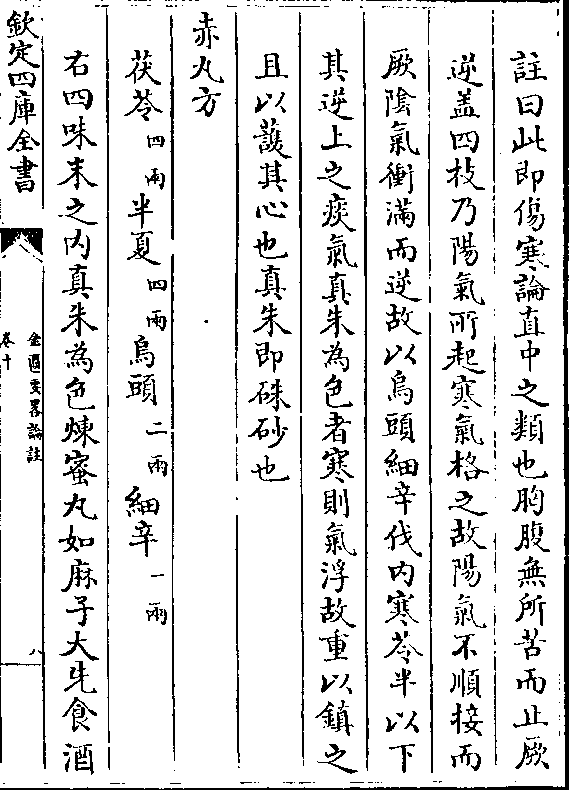 註曰此即傷寒論直中之類也胸腹無所苦而止厥
逆盖四枝乃陽氣所起寒氣格之故陽氣不順接而
厥陰氣衝滿而逆故以烏頭細辛伐内寒苓半以下
其逆上之痰氣真朱為色者寒則氣浮故重以鎮之
且以䕶其心也真朱即硃砂也
赤丸方
茯苓四兩半夏四兩烏頭二兩細辛一兩
右四味末之内真朱為色煉蜜丸如麻子大先食酒
欽定四庫全書
金匱要畧論註
卷十
八